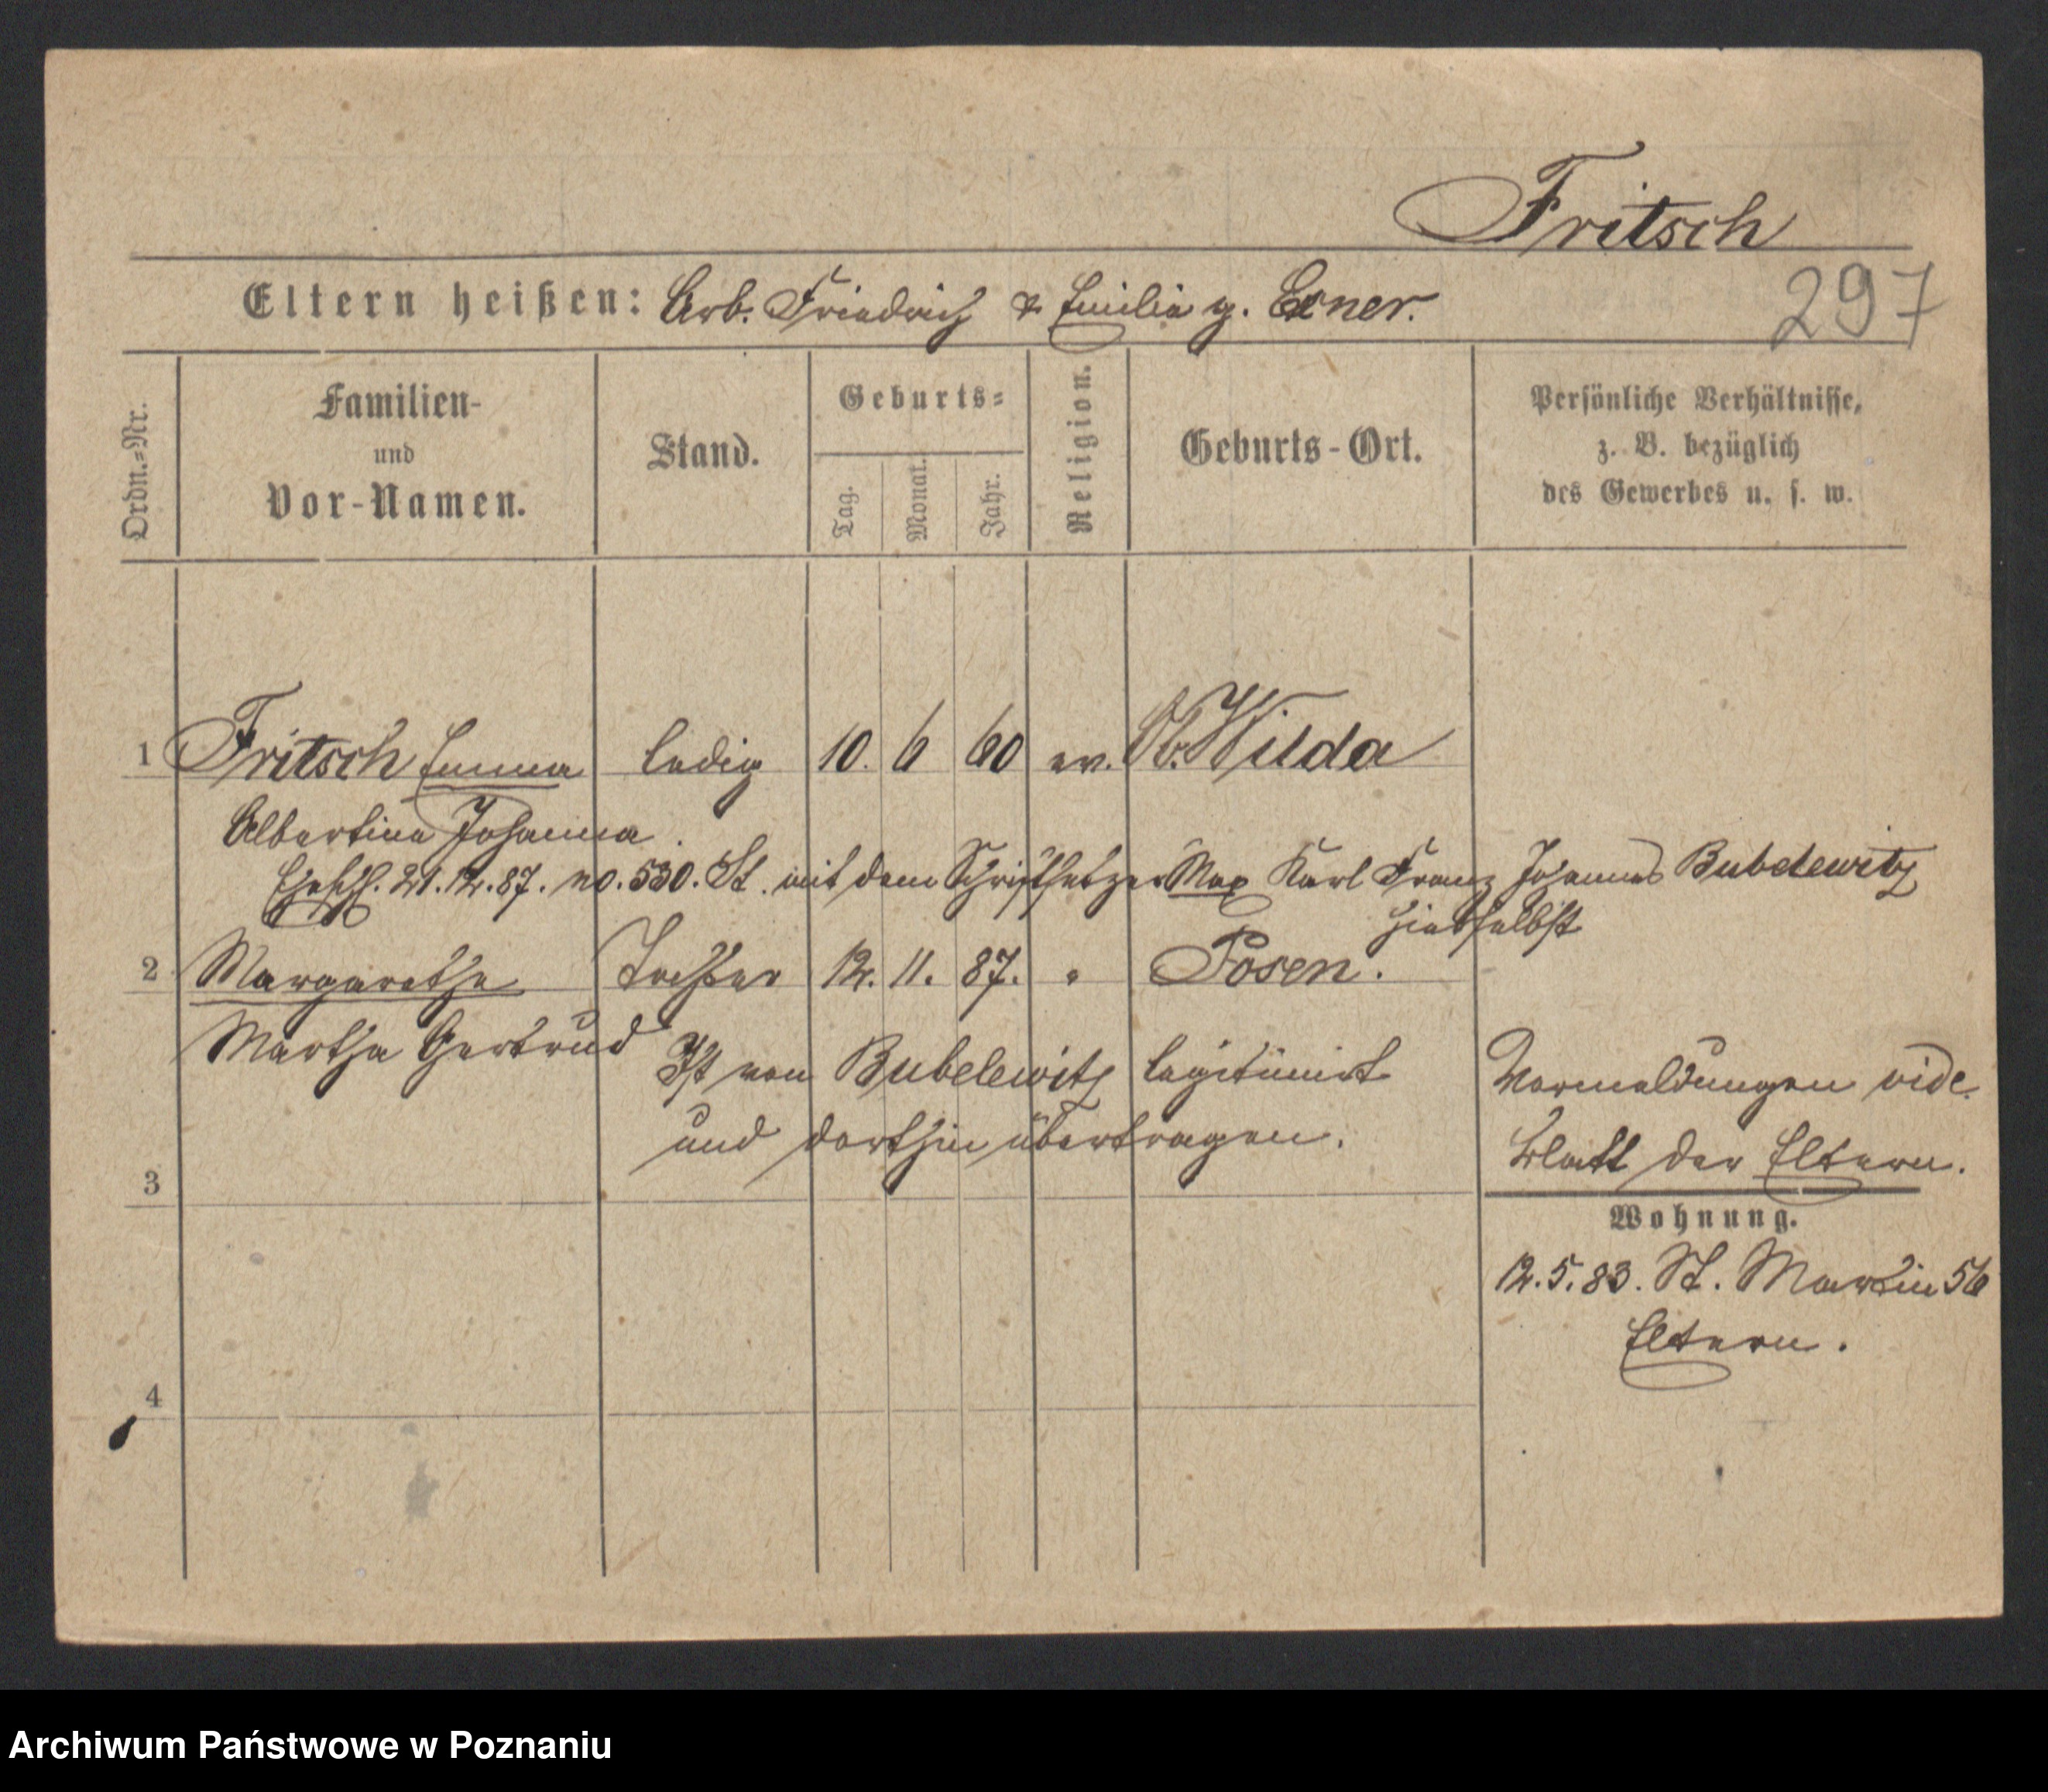 Fritsch
297
Eltern heißen: Arb. Friedrich & Emilie g. Exner.
Ordn.-Nr.
Familien-
und
Vor-Namen.
Stand.
Geburts-
Tag.
Monat.
Jahr.
Religion.
Geburts-Ort.
Persönliche Verhältnisse,
z. B. bezüglich
des Gewerbes u. s. w.
1 Fritsch Emma ledig 10. 6 60 ev. Ob. Wilda
Albertine Johanna.
Eheschl. 21.12.87. no. 530. St. mit dem Schriftsetzer Max Karl Franz Johannes Bubelewitz
hierselbst
2 Margarethe Tochter 12. 11. 87. " Posen.
Martha Gertrud
Ist von Bubelewitz legitimirt
und dorthin übertragen.
Vormeldungen vide.
Blatt der Eltern.
3
Wohnung.
12.5.83. St. Martin 56
Eltern.
4
Archiwum Państwowe w Poznaniu